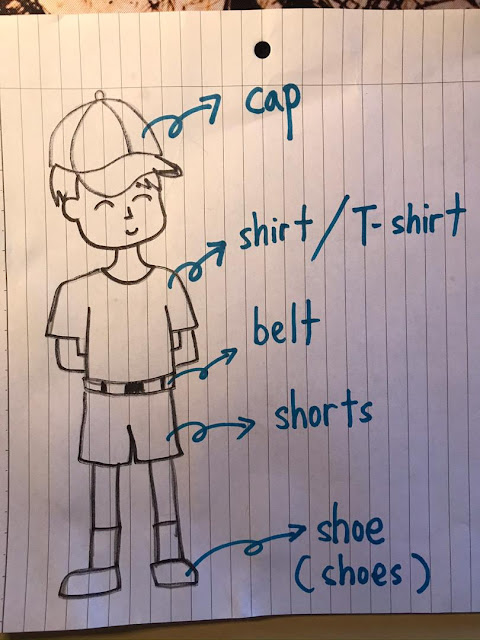 cap
shirt / T-shirt
belt
shorts
shoe
(shoes)